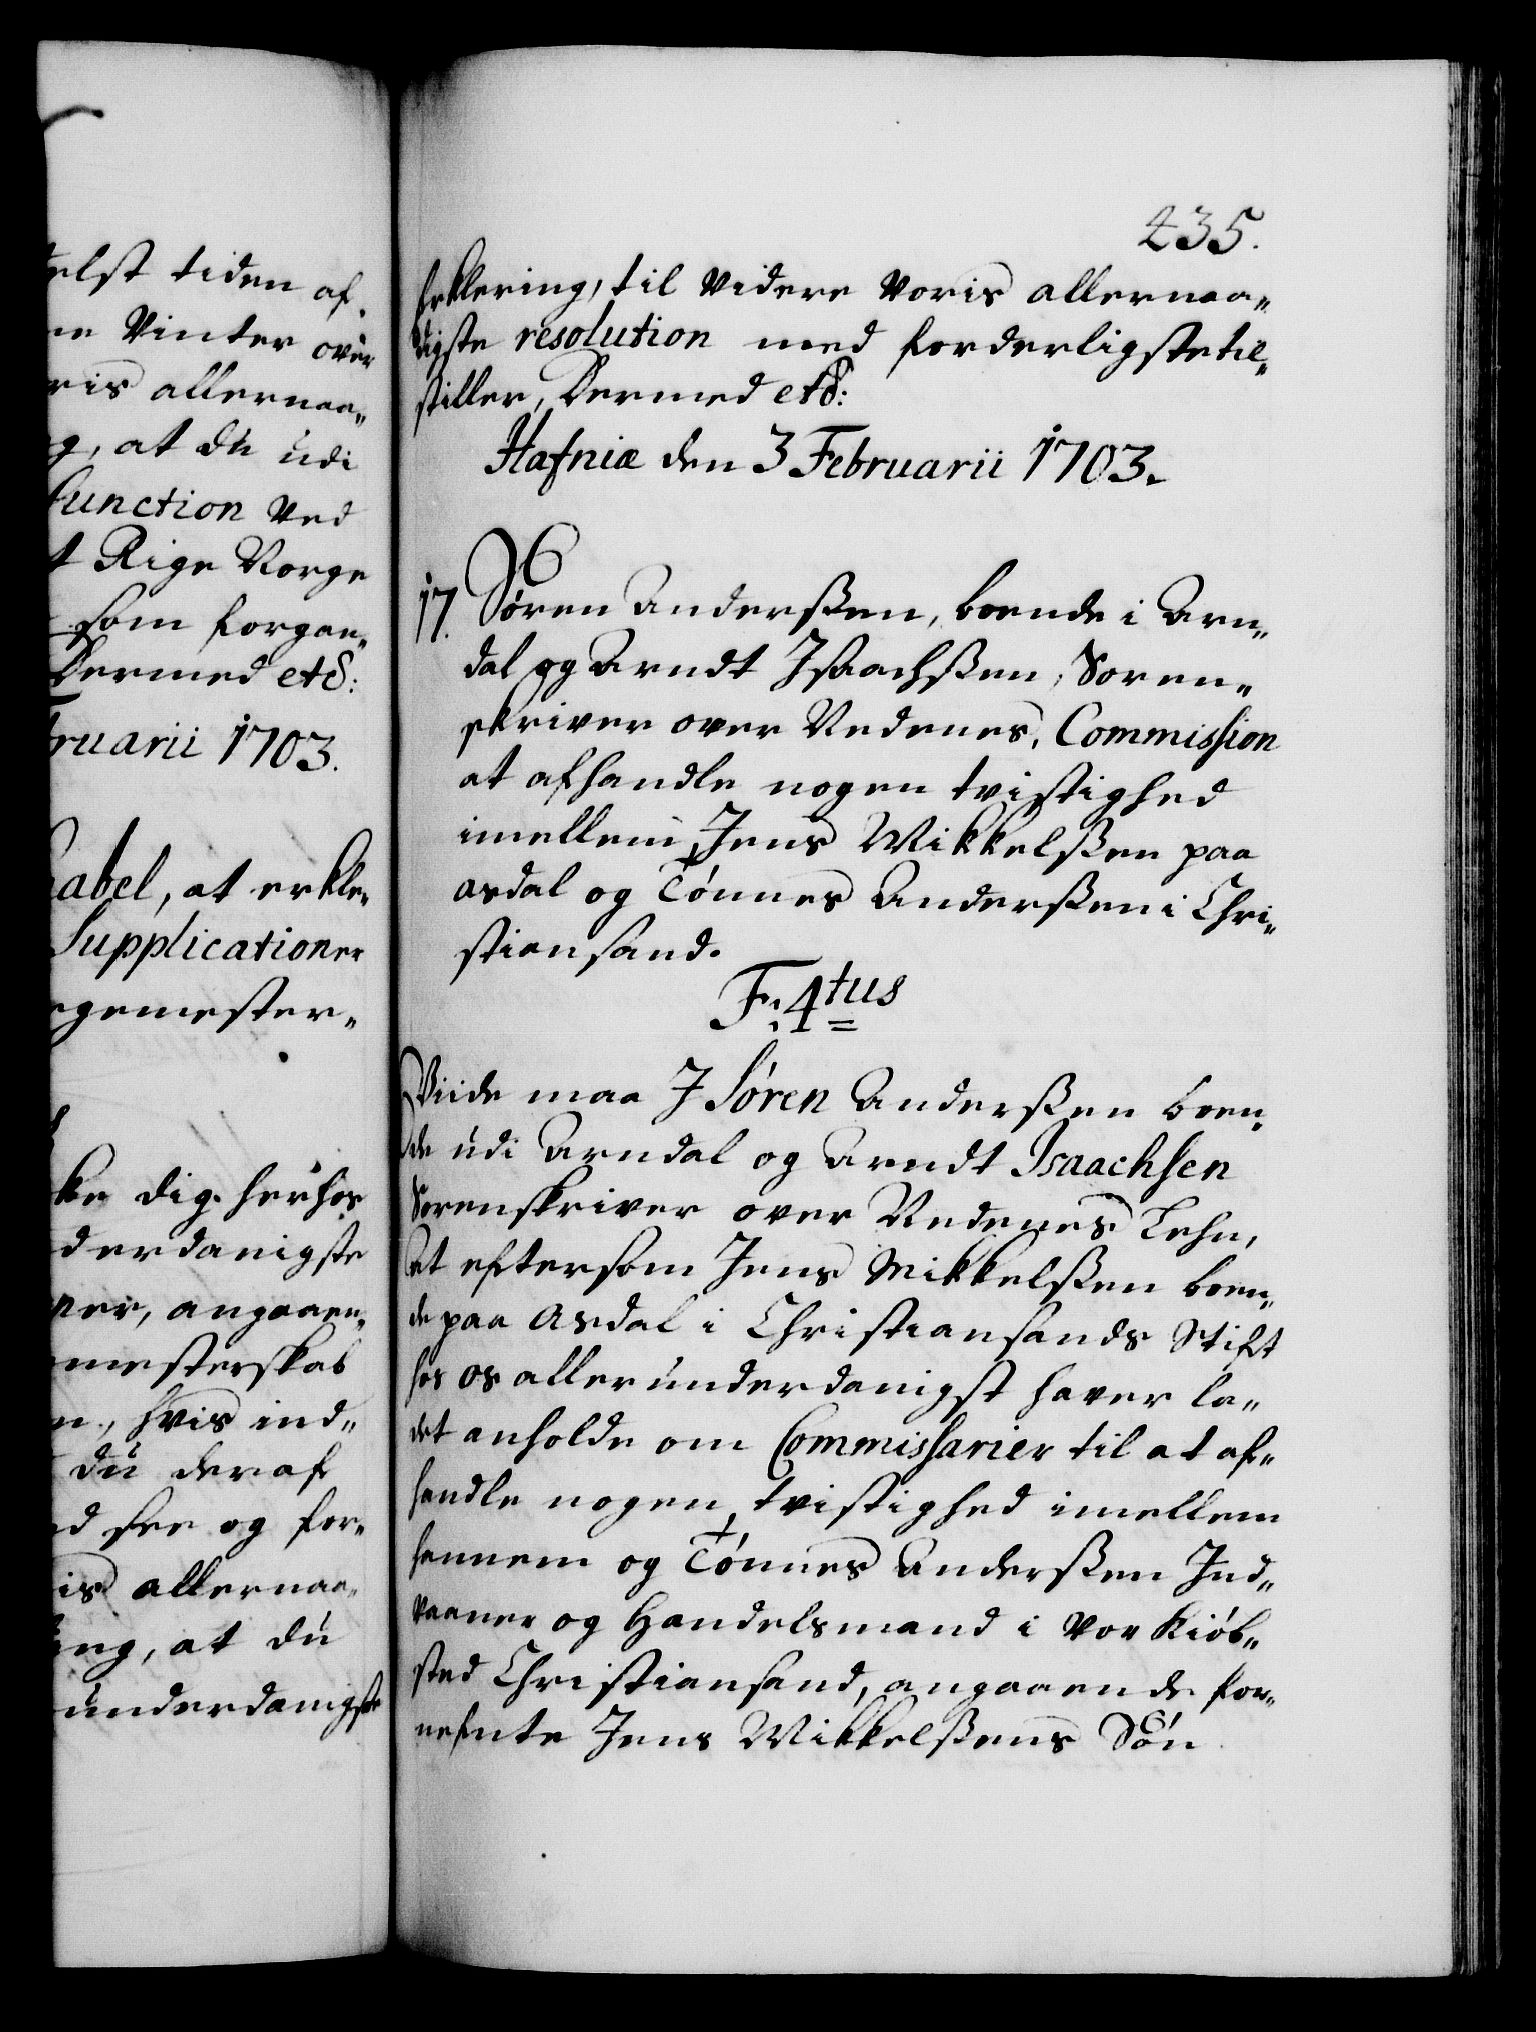 elst tiden af„
ne Vinter over
ris allernaa„
g, at du udi
function ved
t Rige Norge
som forgan„
Dermed etc:
ruarii 1703.
abel, at erkle„
Supplicationer
egemester„
ke dig herhos
derdanigste
ner, angaaen„
mesterskab
n, hvis ind„
du deraf
d see og for„
is allernaa„
ing, at du
underdanigste
235.
erklering, til videre Voris allernaa„
digste resolution med forderligste til„
stiller, Dermed etc:
Hafniæ den 3 Februarii 1703.
17. Sören Anderssen, boende i Arn„
dal og Arndt Isaachssen, Soren„
skriver over Nedenes, Commission
at afhandle nogen tvistighed
imellem Jens Mikkelssen paa
asdal og Tönnes Anderssen i Chri„
stiansand.
F: 4tus
Viide maa I Sören Anderssen boen„
de udi Arndal og Arndt Isaachsen
Sorenskriver over Nedenes Lehn,
At eftersom Jens Mikkelssen boen„
de paa Asdal i Christiansands Stift
hos os allerunderdanigst haver la„
det anholde om Commissarier til at af„
handle nogen tvistighed imellem
hannem og Tönnes Anderssen Ind„
vaaner og Handelsmand i vor Kiöb„
sted Christiansand, angaaende for„
nefnte Jens Mikkelssens Sön